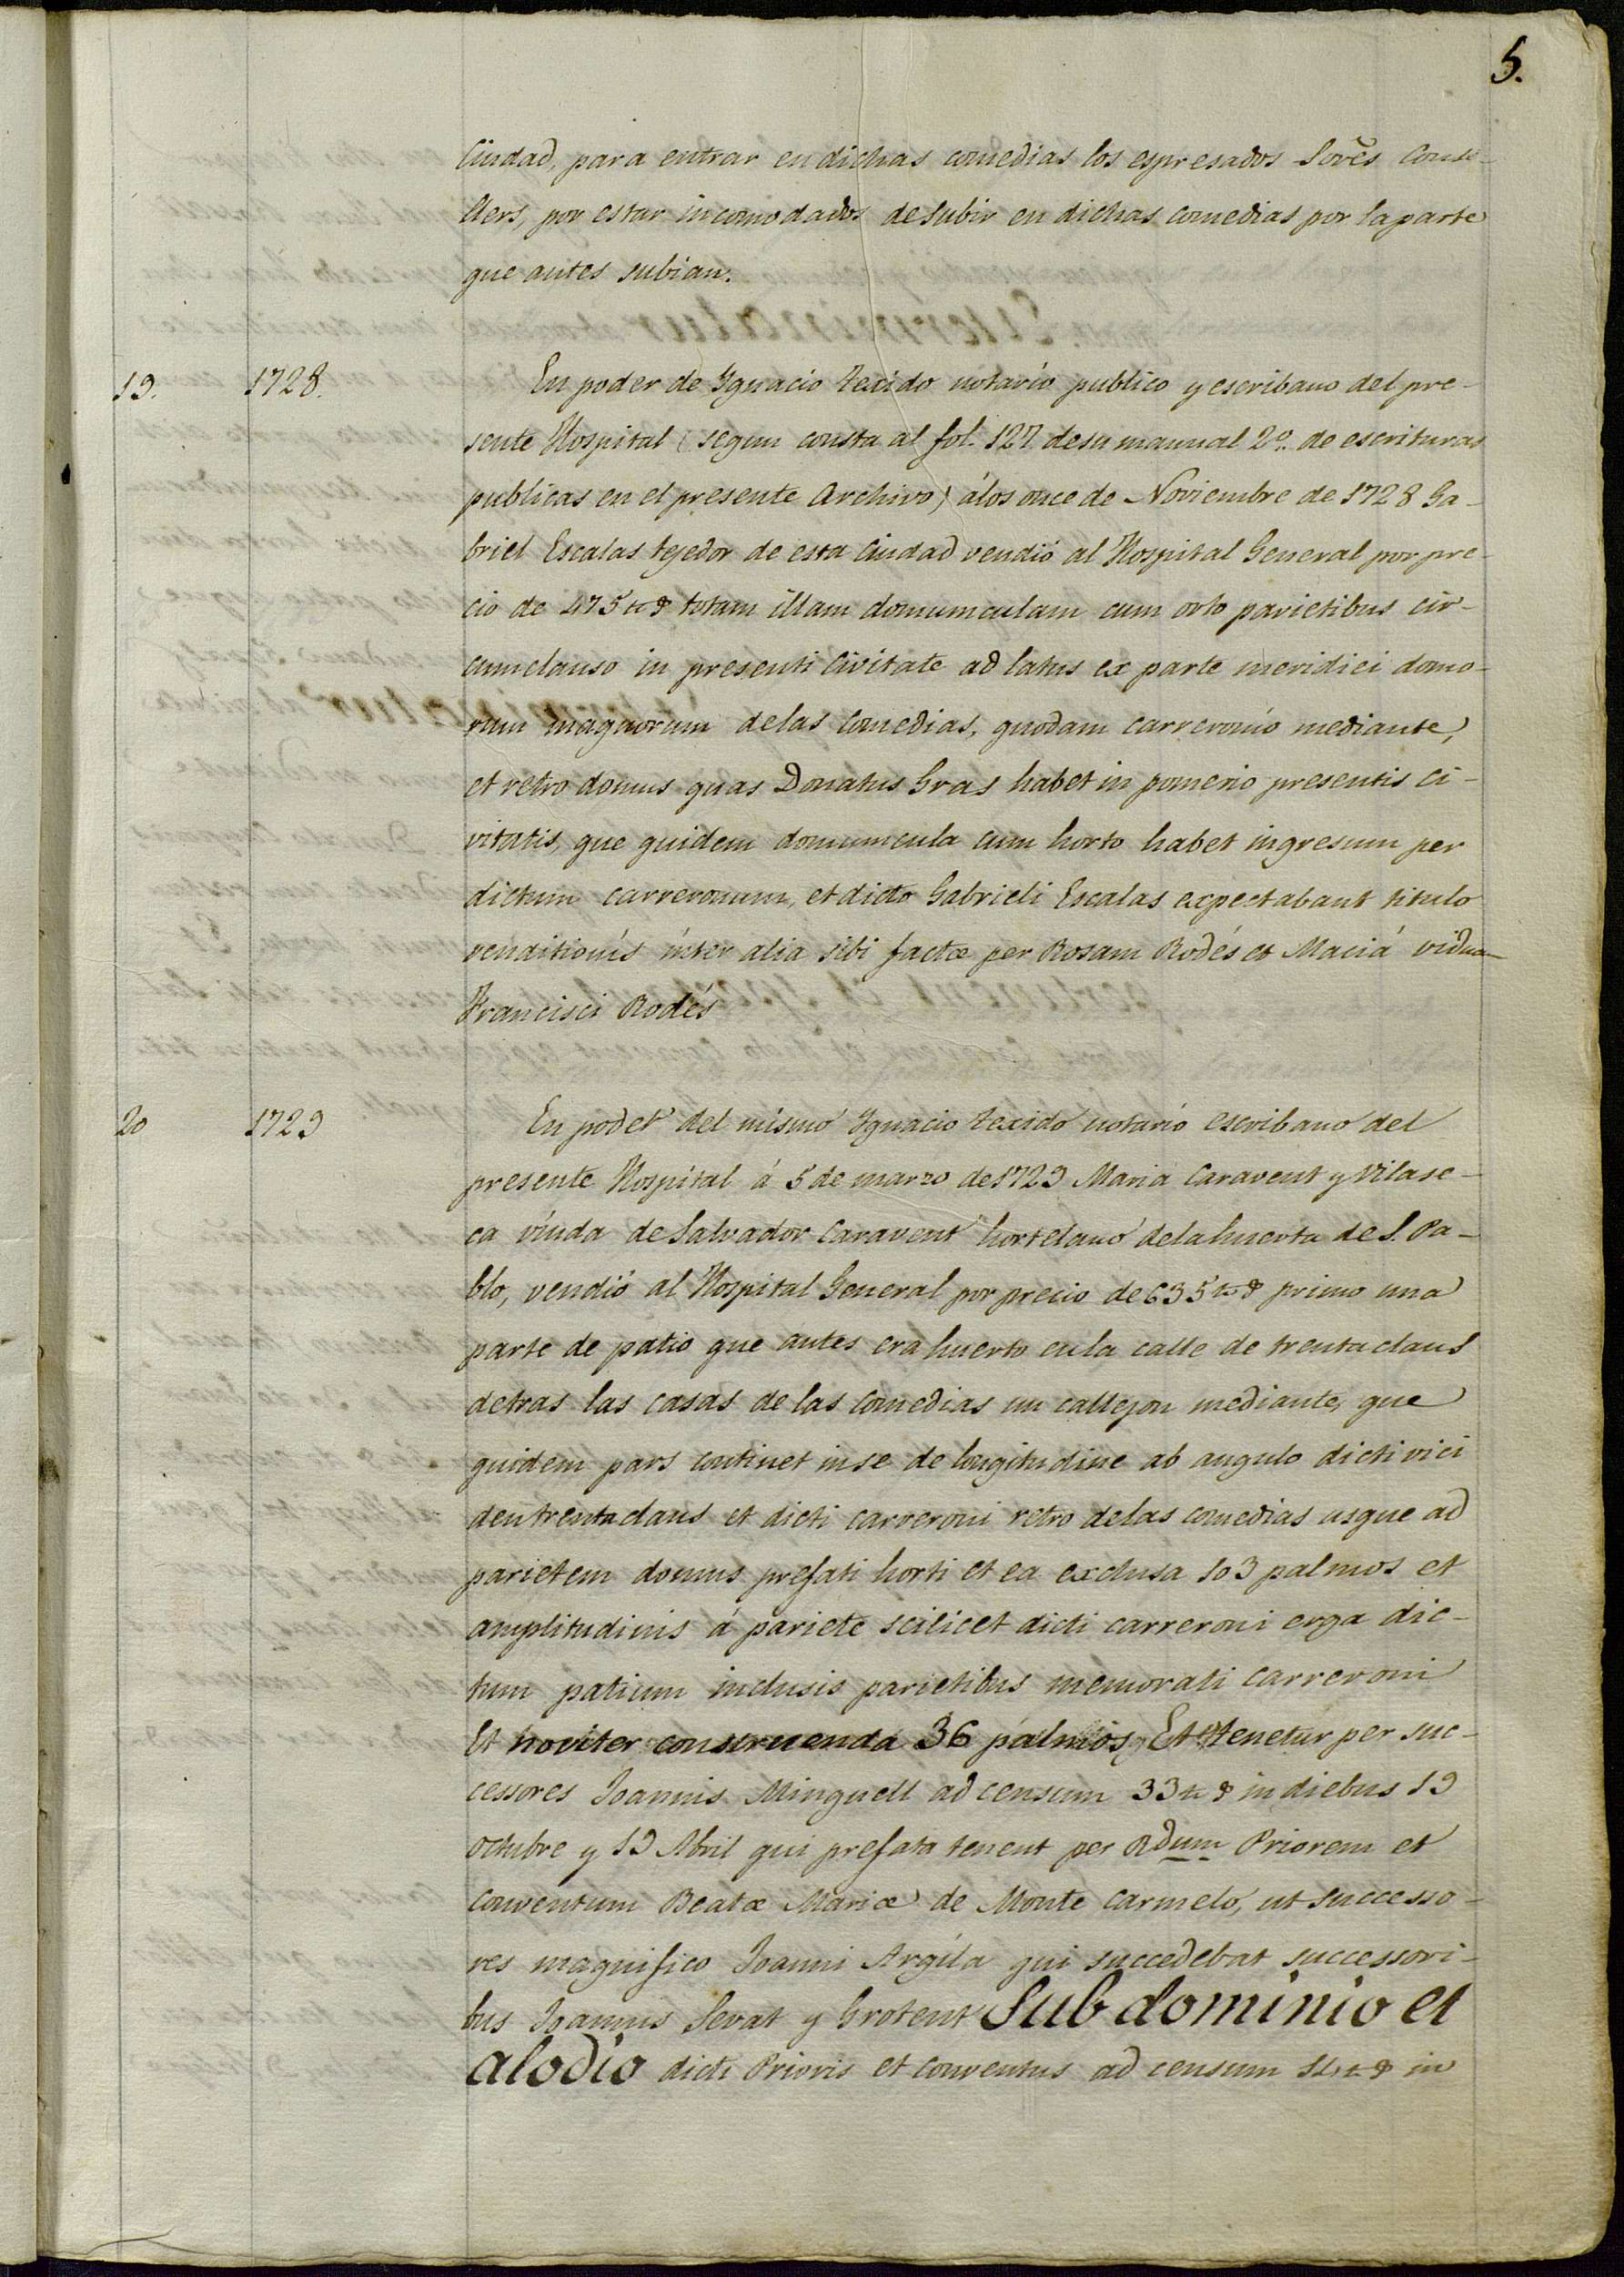 5.
Ciudad, para entrar en dichas comedias los espresados Sores Conse-
llers, por estar incomodados de subir en dichas comedias por la parte
que antes subian.
19. 1728. En poder de Ygnacio Texido notario publico y escribano del pre-
sente Hospital (segun consta al fol. 127 de su manual 2º. de escrituras
publicas en el presente Archivo) á los once de Noviembre de 1728 Ga-
briel Escalas tejedor de esta Ciudad vendió al Hospital General por pre-
cio de 475 ₶ totam illam domumculam cum orto parietibus cir-
cumclauso in presenti Civitate ad latus ex parte meridiei domo-
rum magnorum de las Comedias, quodam carreronio mediante,
et retro domus quas Donatus Gras habet in pomerio presentis ci-
vitatis, que quidem domumcula cum horto habet ingresum per
dictum carreronum, et dicto Gabrieli Escalas expectabant titulo
venditionis inter alia sibi factæ per Rosam Rodés et Maciá vidua
Francisci Rodés
20 1729 En poder del mismo Ygnacio Texido notario escribano del
presente Hospital á 5 de marzo de 1729 Maria Caravent y Vilase-
ca viuda de Salvador Caravent hortelano de la huerta de S. Pa-
blo, vendió al Hospital General por precio de 635 ₶ primo una
parte de patio que antes era huerto en la calle de trentaclaus
detras las casas de las Comedias un callejon mediante, que
quidem pars continet in se de longitudine ab angulo dicti vici
den trentaclaus et dicti carreroni retro de las comedias usque ad
parietem domus prefati horti et ea exclusa 103 palmos et
amplitudinis á pariete scilicet dicti carreroni erga dic-
tum patium inclusis parietibus memorati carreroni
Et noviter construenda 36 palmios, Et tenetur per suc-
cessores Joannis Minguell ad censum 33 ₶ in diebus 19
octubre y 19 Abril qui prefata tenent per Rdum Priorem et
conventum Beatæ Mariæ de Monte Carmelo, ut successo-
res magnifico Joanni Argila qui succedebat successori-
bus Joannis Serat y Grotent Sub dominio et
alodio dicti Prioris et conventus ad censum ₶ in